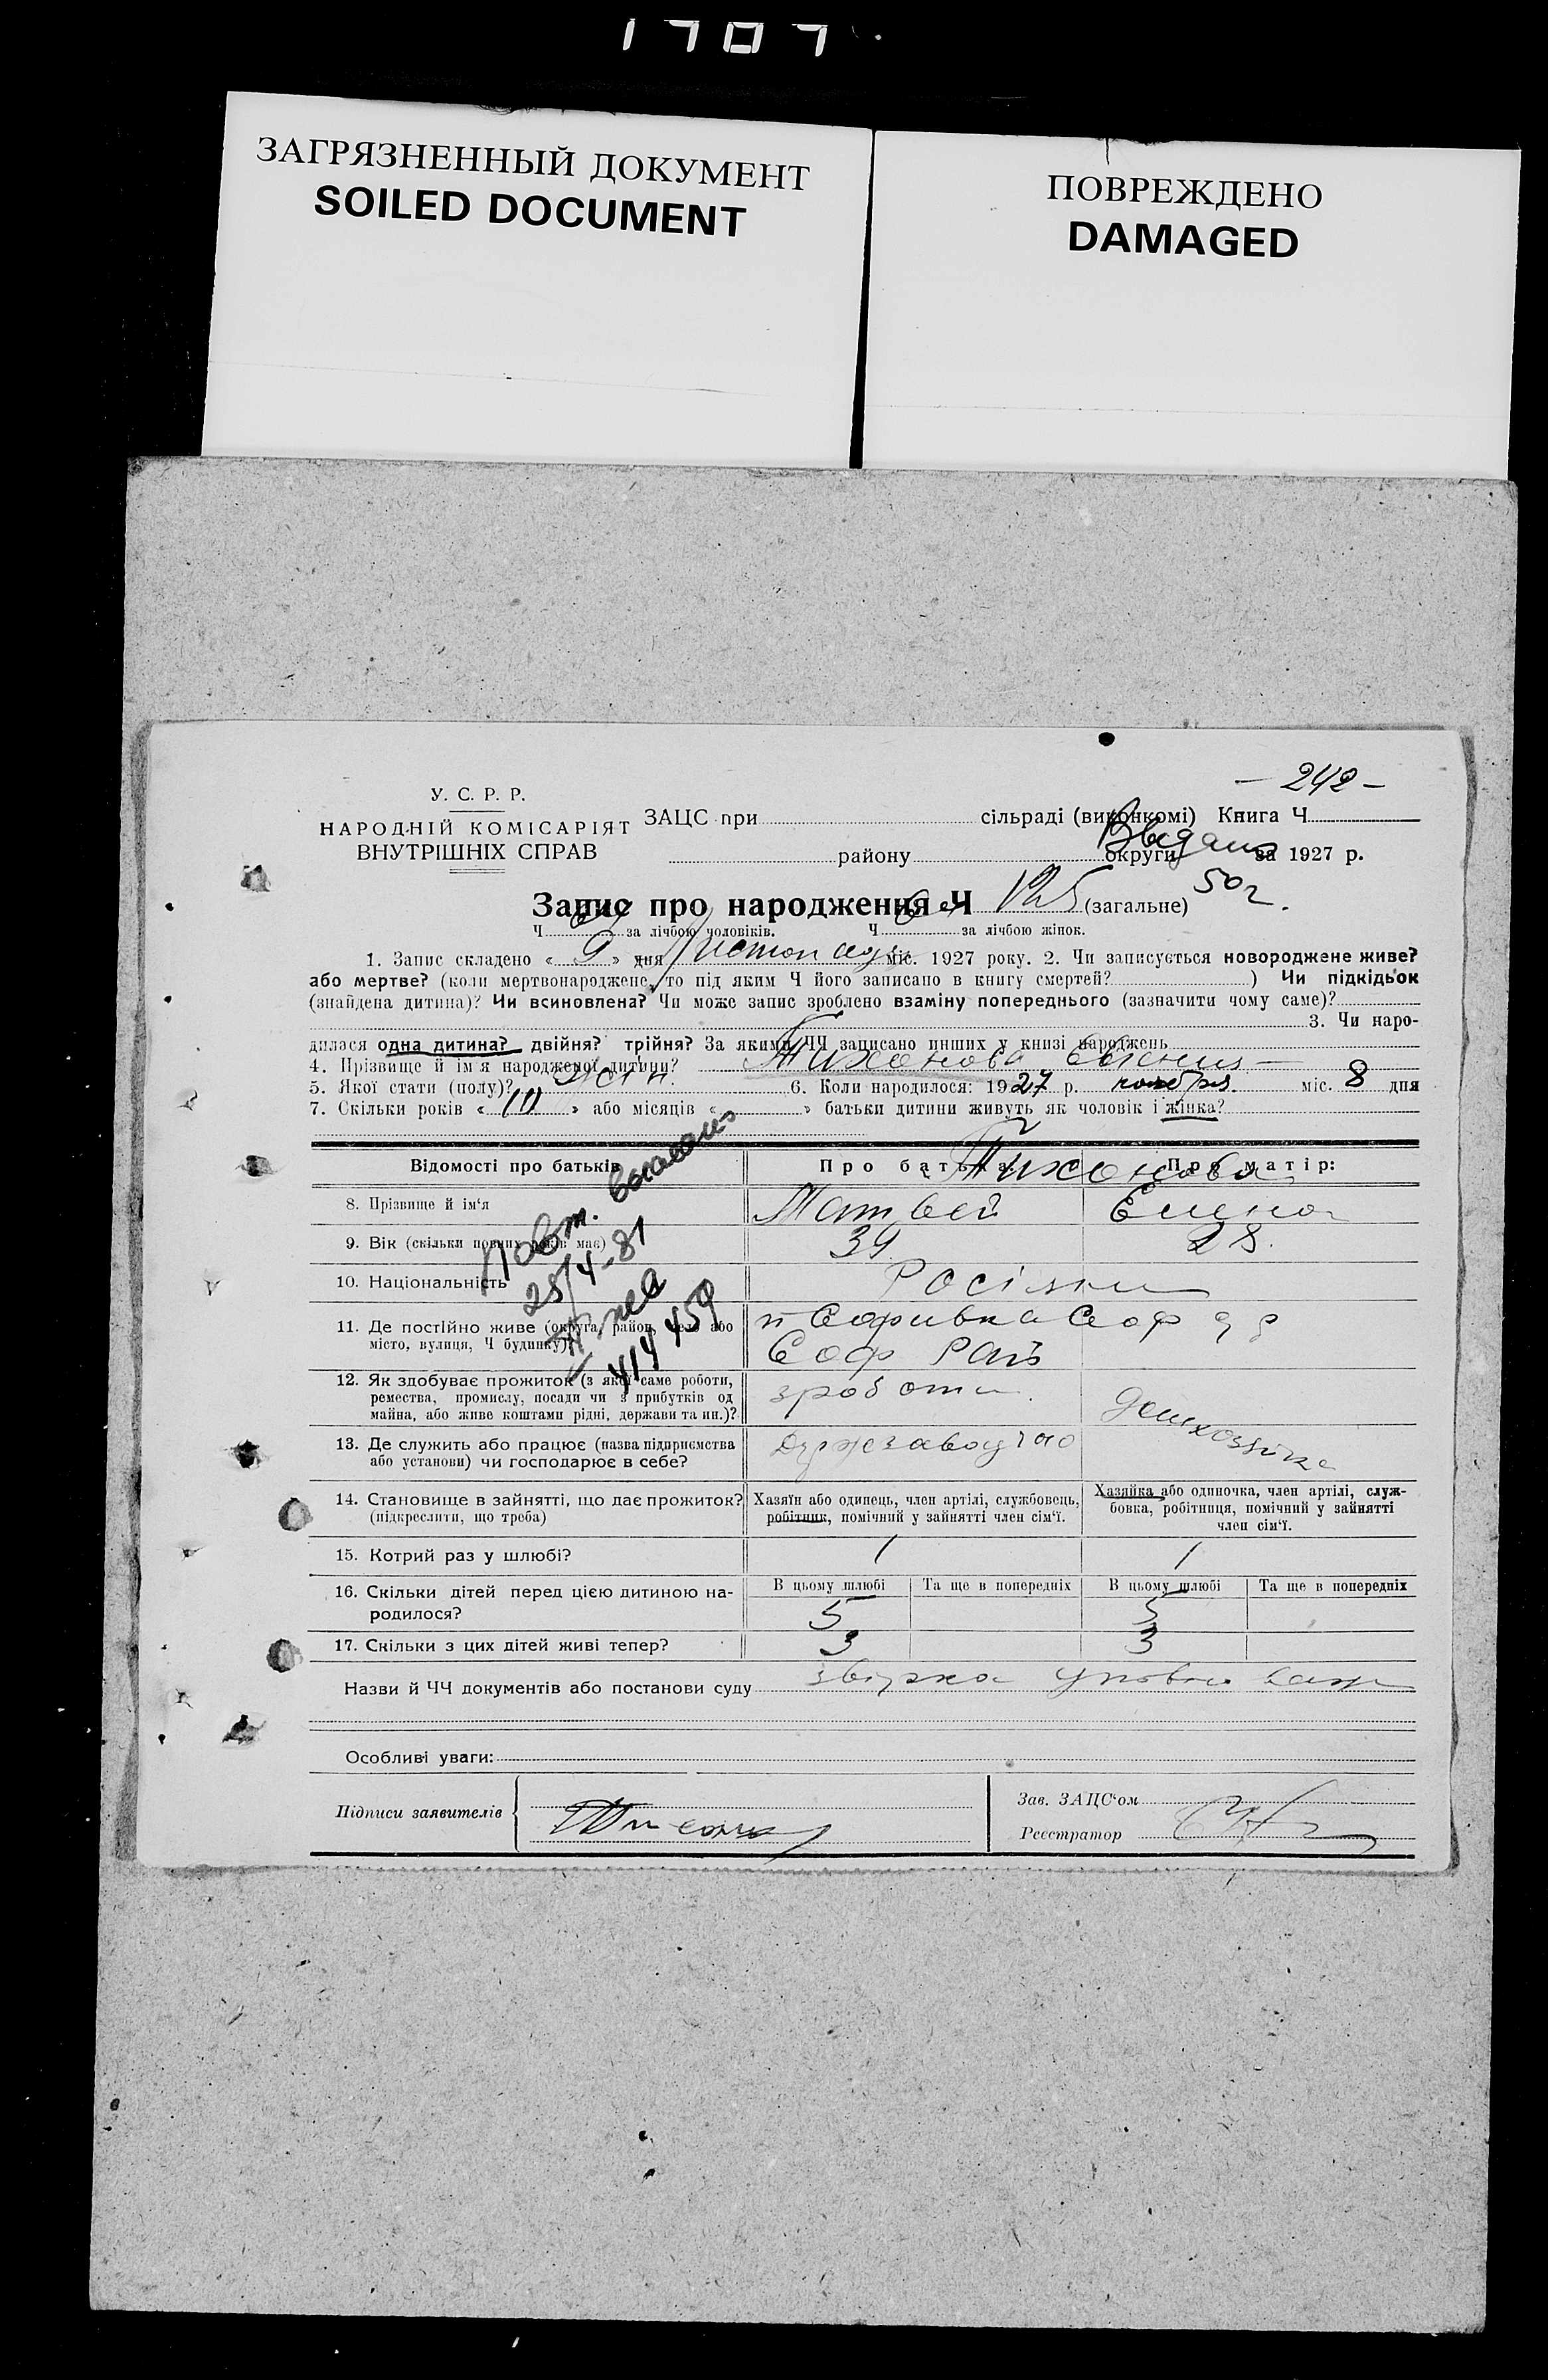 1707
ЗАГРЯЗНЕННЫЙ ДОКУМЕНТ
SOILED DOCUMENT
ПОВРЕЖДЕНО
DAMAGED
- 242 -
У. С. Р. Р.
НАРОДНІЙ КОМІСАРІЯТ
ВНУТРІШНІХ СПРАВ
ЗАЦС при сільраді (виконкомі) Книга Ч
району округи за 1927 р.
Видано
50 г.
Запис про народження Ч 125 (загальне)
Ч за лічбою чоловіків. Ч за лічбою жінок.
1. Запис складено « 9 » дня Листопада міс. 1927 року. 2. Чи записується новороджене живе?
або мертве? (коли мертвонароджене, то під яким Ч його записано в книгу смертей? ) Чи підкідьок
(знайдена дитина)? Чи всиновлена? Чи може запис зроблено взаміну попереднього (зазначити чому саме)?
3. Чи наро-
дилася одна дитина? двійня? трійня? За якими ЧЧ записано инших у книзі народжень
4. Прізвище й ім'я народженої дитини? Тихонова Евгения
5. Якої стати (полу)? жін. 6. Коли народилося: 1927 р. ноября міс. 8 дня
7. Скільки років « 10 » або місяців « » батьки дитини живуть як чоловік і жінка?
Відомості про батьків Про батька: Про матір:
Тихонови
8. Прізвище й ім'я Матвей Елена
9. Вік (скільки повних років має) 39 28.
10. Національність Росіяни
11. Де постійно живе (округа, район, село або
місто, вулиця, Ч будинку)?
Соф
12. Як здобуває прожиток (з якої саме роботи,
ремества, промислу, посади чи з прибутків од
майна, або живе коштами рідні, держави та ин.)?
зроботи.
домхозяйка
13. Де служить або працює (назва підприємства
або установи) чи господарює в себе?
14. Становище в зайнятті, що дає прожиток?
(підкреслити, що треба)
Хазяїн або одинець, член артілі, службовець,
робітник, помічний у зайнятті член сім'ї.
Хазяйка або одиночка, член артілі, служ-
бовка, робітниця, помічний у зайнятті
член сім'ї.
15. Котрий раз у шлюбі? 1 1
16. Скільки дітей перед цією дитиною на-
родилося?
В цьому шлюбі Та ще в попередніх В цьому шлюбі Та ще в попередніх
5 5
17. Скільки з цих дітей живі тепер? 3 3
Назви й ЧЧ документів або постанови суду
Особливі уваги:
Підписи заявителів
Зав. ЗАЦС'ом
Реєстратор
Повт. выслано
25/4-81
414459